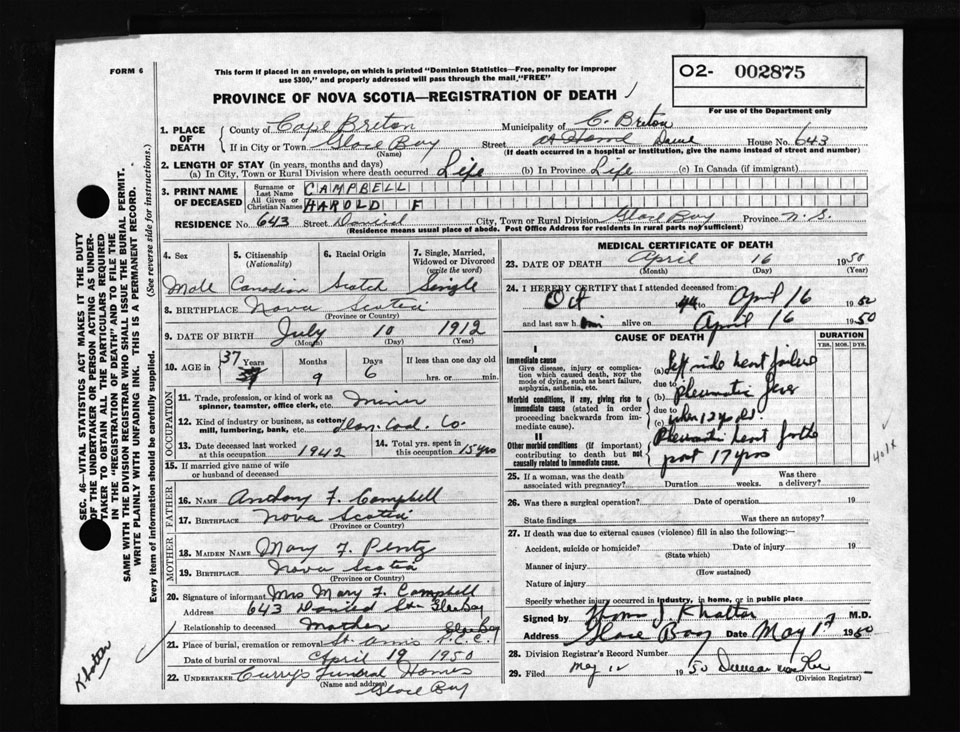 FORM 6
This form if placed in an envelope, on which is printed "Dominion Statistics—Free, penalty for improper
use $300," and properly addressed will pass through the mail, "FREE"
O2- 002875
For use of the Department only
PROVINCE OF NOVA SCOTIA—REGISTRATION OF DEATH
1. PLACE OF DEATH
County of Cape Breton Municipality of C. Breton
If in City or Town Glace Bay Street House No. 643
(Name) (If death occurred in a hospital or institution, give the name instead of street and number)
2. LENGTH OF STAY (in years, months and days)
(a) In City, Town or Rural Division where death occurred Life (b) In Province Life (c) In Canada (if immigrant)
3. PRINT NAME OF DECEASED
Surname or Last Name CAMPBELL
All Given or Christian Names HAROLD F
RESIDENCE No. 643 Street City, Town or Rural Division Glace Bay Province N.S.
(Residence means usual place of abode. Post Office Address for residents in rural parts not sufficient)
4. Sex 5. Citizenship (Nationality) 6. Racial Origin 7. Single, Married, Widowed or Divorced (write the word)
Male Canadian Scotch Single
8. BIRTHPLACE Nova Scotia
(Province or Country)
9. DATE OF BIRTH July 10 1912
(Month) (Day) (Year)
10. AGE in 37 Years Months 9 Days 6 If less than one day old
hrs. or min.
OCCUPATION
11. Trade, profession, or kind of work as spinner, teamster, office clerk, etc. Miner
12. Kind of industry or business, as cotton mill, lumbering, bank, etc. Dom. Coal. Co.
13. Date deceased last worked at this occupation 1942 14. Total yrs. spent in this occupation 15 yrs
15. If married give name of wife or husband of deceased
FATHER
16. NAME Anthony F. Campbell
17. BIRTHPLACE Nova Scotia
(Province or Country)
MOTHER
18. MAIDEN NAME Mary F. Pentz
19. BIRTHPLACE Nova Scotia
(Province or Country)
20. Signature of informant Mrs Mary F. Campbell
Address 643 Glace Bay
Relationship to deceased Mother
21. Place of burial, cremation or removal St. Anns Glace Bay
Date of burial or removal April 19 1950
22. UNDERTAKER Curry's Funeral Homes
(Name and address)
Glace Bay
MEDICAL CERTIFICATE OF DEATH
23. DATE OF DEATH April 16 1950
(Month) (Day) (Year)
24. I HEREBY CERTIFY that I attended deceased from:
Oct 44 to April 16 1950
and last saw him alive on April 16 1950
CAUSE OF DEATH
DURATION
YRS. MOS. DYS.
I
Immediate cause
Give disease, injury or complication which caused death, NOT the mode of dying, such as heart failure, asphyxia, asthenia, etc.
(a) Left side heart failure
due to
Morbid conditions, if any, giving rise to immediate cause (stated in order proceeding backwards from immediate cause).
(b) Rheumatic fever
due to
(c) when 12 yrs old.
II
Other morbid conditions (if important) contributing to death but not causally related to immediate cause.
Rheumatic heart for the
past 17 yrs
25. If a woman, was the death associated with pregnancy? Duration weeks. Was there a delivery?
26. Was there a surgical operation? Date of operation 19
State findings Was there an autopsy?
27. If death was due to external causes (violence) fill in also the following:—
Accident, suicide or homicide? Date of injury 19
(State which)
Manner of injury
(How sustained)
Nature of injury
Specify whether injury occurred in industry, in home, or in public place
Signed by J Khattar M.D.
Address Glace Bay Date May 17 1950
28. Division Registrar's Record Number
29. Filed May 12 1950
(Division Registrar)
SEC. 46—VITAL STATISTICS ACT MAKES IT THE DUTY
OF THE UNDERTAKER OR PERSON ACTING AS UNDER-
TAKER TO OBTAIN ALL THE PARTICULARS REQUIRED
IN THE "REGISTRATION OF DEATH" AND TO FILE THE
SAME WITH THE DIVISION REGISTRAR WHO SHALL ISSUE THE BURIAL PERMIT.
WRITE PLAINLY WITH UNFADING INK. THIS IS A PERMANENT RECORD.
Every item of information should be carefully supplied. (See reverse side for instructions.)
Khatar